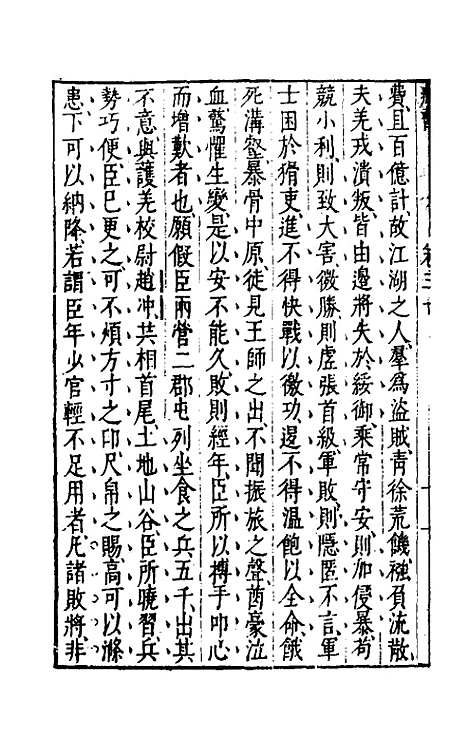 費且百億計故江湖之人羣爲盜賊青徐荒饑襁負流散
夫羌戎潰叛皆由邊將失於綏御乘常守安則加侵暴苟
競小利則致大害微勝則虛張首級軍敗則隱匿不言軍
士困於猾吏進不得快戰以徼功退不得溫飽以全命餓
死溝壑暴骨中原徒見王師之出不聞振旅之聲酋豪泣
血驚懼生變是以安不能久敗則經年臣所以搏手叩心
而增歎者也願假臣兩營二郡屯列坐食之兵五千出其
不意與護羌校尉趙冲共相首尾土地山谷臣所曉習兵
勢巧便臣已更之可不煩方寸之印尺帛之賜高可以滌
患下可以納降若謂臣年少官輕不足用者凡諸敗將非